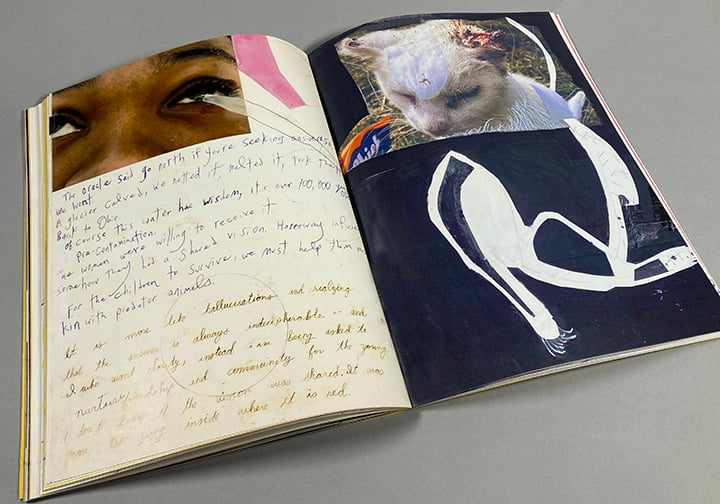 The oracle said go north if you're seeking answers
We went.
A glacier calved, we netted it, melted it, took the
Back to Ohio.
Of course this water has wisdom, it's over 100,000 years
Pre-Contamination.
The women were willing to receive it. Harroway infuse
somehow they had a shared vision.
For the children to survive, we must help them m
kin with predator animals.
It is more like hallucinations and realizing
that the answer is always indecipherable -- and
I who want clarity, instead am being asked to
nurture friendship and community for the young
I don't know if the vision was shared. It was
more like going inside where it is red.